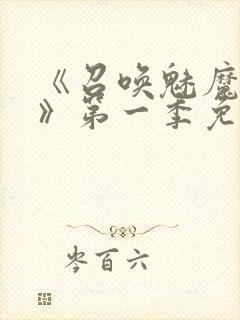 《召唤魅魔
》第一季免
岑百六